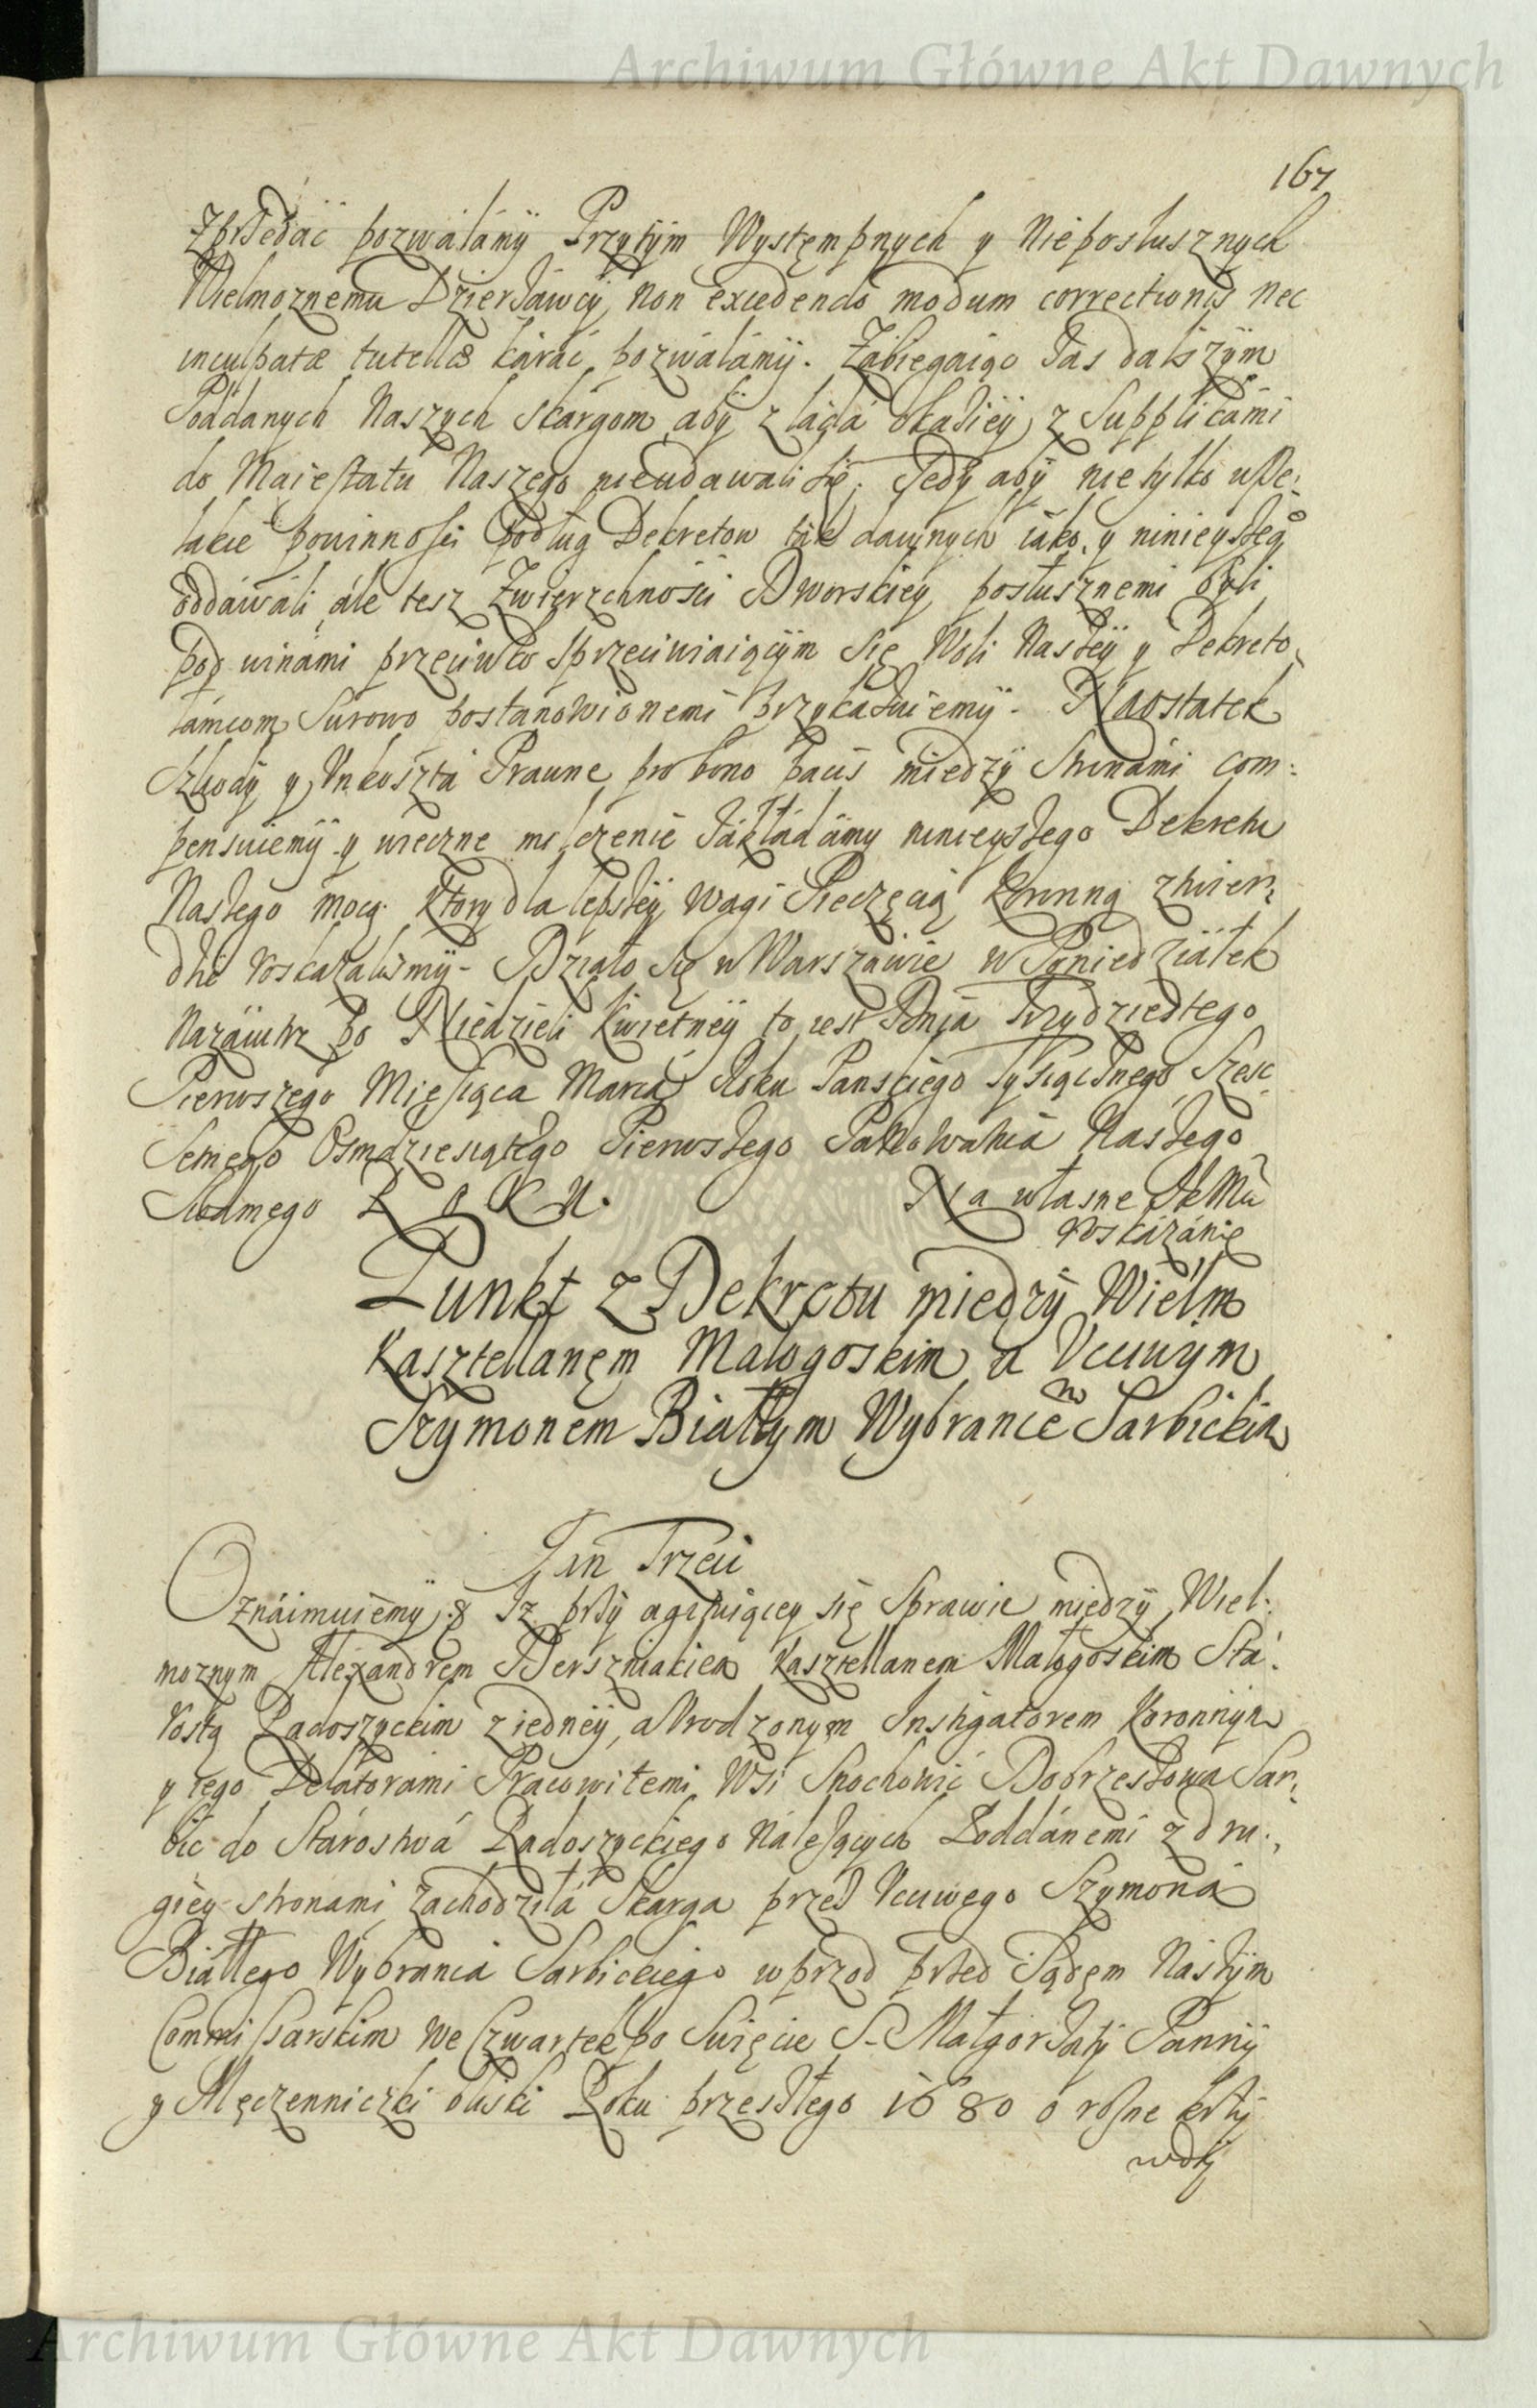 Archiwum Główne Akt Dawnych
167
Zprzedać pozwálámÿ Przytÿm Wystęmpnych y Nieposłusznych
Wielmoznemu Dzierżáwcÿ, non excedendo modum correctionis nec
inculpatæ tutellæ káráć pozwálámÿ. Zábiegaiąc zás dalszÿm
Poddanych Naszych Skárgom, abÿ z ládá okaziÿ z Supplicámi
do Maiestatu Naszego nieudawali się. Tedÿ abÿ nie tylko wsze:
lakie powinnosci podług Dekretow ták dawnych iáko y ninieyszego
oddáwáli, ále tesz Zwierzchnosci Dworskiey posłusznemi byli
pod winámi przeciwko sprzeciwiaiącÿm się Woli Naszÿ y Dekreto
łamcom Surowo postanowionemi przykazuiemÿ. Naostatek
Szkodÿ y Unkosztá Prawne pro bono pacis międzÿ Stronámi com:
pensuiemÿ y wieczne milczenie zákłádámy ninieyszego Dekretu
Naszego mocą. Ktory dla lepszÿ wagi Pieczęcią Koronną ztwier:
dzic roskazalismÿ. Działo się w Warszáwie w Poniedziáłek
Nazáiutrz po Niedzieli Kwietneÿ to iest Dniá Trzydziestego
Pierwszego Miesiąca Marcá Roku Panskiego Tysiącznego Szesc
Setnego Osmdziesiątego Pierwszego Panowania Naszego
Siodmego R O K U.
Na własne JKMci
roskázánie
Punkt z Dekretu międzÿ Wielm
Kasztellanęm Małogoskim a Uczciwÿm
Szymonem Białłym Wybrancem Sarbickim
Jan Trzeci
Oznáimuiemÿ &c Iz przÿ agituiącey się Sprawie międzÿ Wiel:
moznym Alexandrem Berszniakiem Kasztellanem Małogoskim Stá:
rostą Radoszyckim z iedneÿ, a Urodzonym Instigatorem Koronnÿm
y iego Delatorami Pracowitemi Wsi Snochowic Dobrzeszowa Sar:
bic do Stárostwá Radoszyckiego Náleżących Poddánemi z dru:
giey stronami záchodziłá Skarga przez Uczciwego Szymoná
Białłego Wybrancá Sarbickiego wprzod przed Sądęm Naszÿm
Commissarskim we Czwartek po Swięcie S. Małgorzaty Pannÿ
y Męczenniczki bliski Roku przeszłego 1680 o rożne krzÿ
wdÿ
Archiwum Główne Akt Dawnych